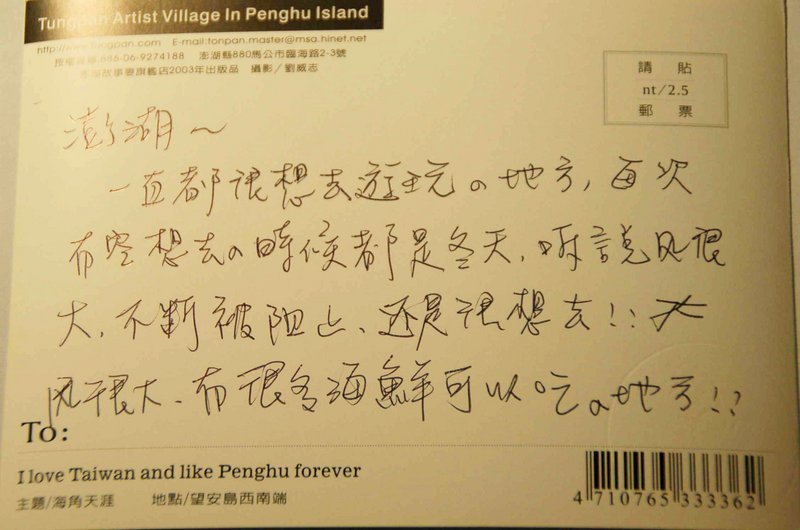 Tungpan Artist Village In Penghu Island
http://www.tungpan.com E-mail:tonpan.master@msa.hinet.net
886-06-9274188 澎湖縣880馬公市臨海路2-3號
澎湖故事妻旗艦店2003年出版品 攝影/劉威志
請貼
nt/2.5
郵票
澎湖~
一直都很想去遊玩の地方,每次
有空想去の時候都是冬天,聽說風很
大,不斷被阻止、还是很想去!!
风很大、有很多海鮮可以吃の地方!!
To:
I love Taiwan and like Penghu forever
主題/海角天涯 地點/望安島西南端
4 710765 333362